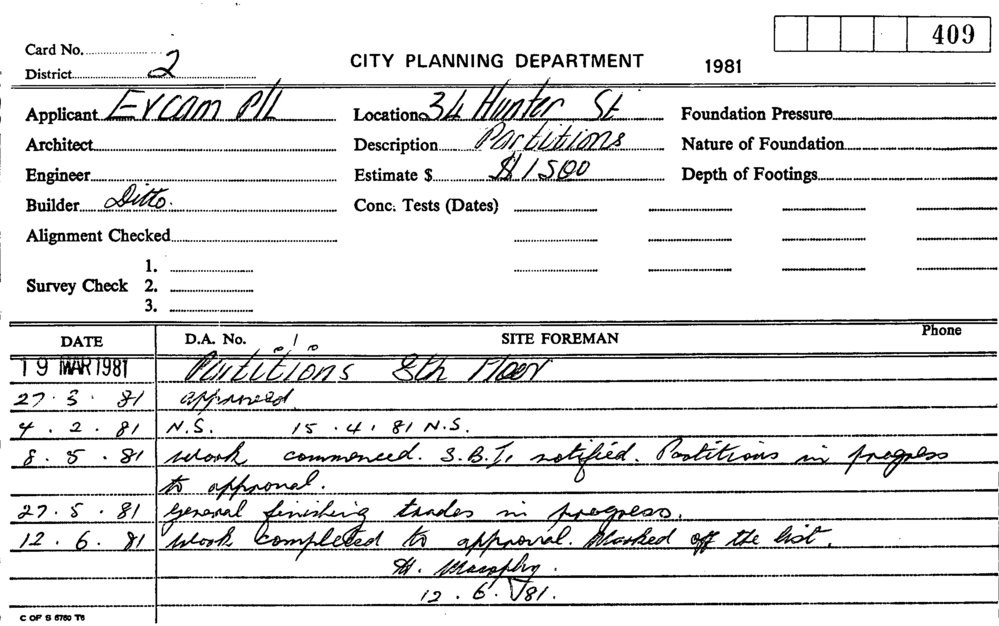 409
Card No.
CITY PLANNING DEPARTMENT 1981
District 2
Applicant Evcam P/L Location 34 Hunter St Foundation Pressure
Architect Description Partitions Nature of Foundation
Engineer Estimate $ $1500 Depth of Footings
Builder Ditto. Conc. Tests (Dates)
Alignment Checked
1.
Survey Check 2.
3.
DATE D.A. No. SITE FOREMAN Phone
19 MAR 1981 Partitions 8th Floor
27.3.81 approved
4.2.81 N.S. 15.4.81 N.S.
8.5.81 work commenced. S.B.I. notified. Partitions in progress
to approval.
27.5.81 General finishing trades in progress.
12.6.81 work completed to approval. Marked off the list.
12.6.81.
C OF S 5760 T6